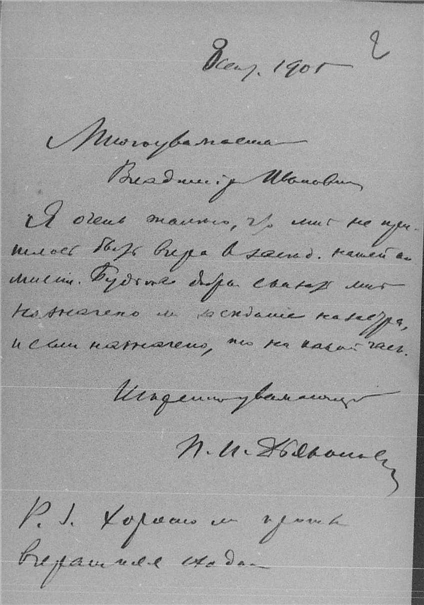 2
8 сент. 1905
Многоуважаемый
Владимір Иванович
Я очень жалѣю, что мнѣ не при-
шлось быть вчера в засѣд. нашей ко-
миссіи. Будьте добры сказать мнѣ
назначено ли засѣданіе на завтра,
и если назначено, то на какой час.
Искренноуважающій
П. И.
P. S. Хорошо ли прошла
вчерашняя сходка